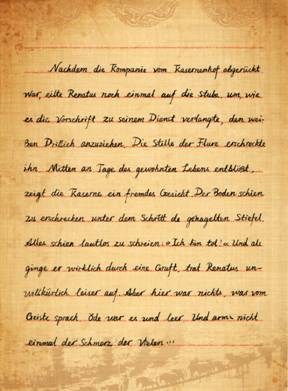 Nachdem die Kompanie vom Kasernenhof abgerückt
war, eilte Renatus noch einmal auf die Stube, um, wie
es die Vorschrift zu seinem Dienst verlangte, den wei-
ßen Drillich anzuziehen. Die Stille der Flure erschreckte
ihn. Mitten am Tage des gewohnten Lebens entblößt,
zeigt die Kaserne ein fremdes Gesicht. Der Boden schien
zu erschrecken unter dem Schritt de genagelten Stiefel.
Alles schien lautlos zu schreien: »Ich bin tot!« Und als
ginge er wirklich durch eine Gruft, trat Renatus un-
willkürlich leiser auf. Aber hier war nichts, was vom
Geiste sprach. Öde war es und leer. Und arm, nicht
einmal der Schmerz der Vielen ...